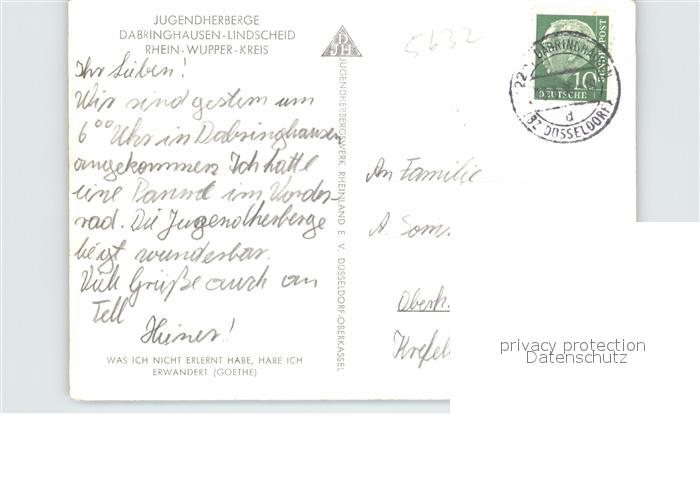 JUGENDHERBERGE
DABRINGHAUSEN-LINDSCHEID
RHEIN-WUPPER-KREIS
Ihr Lieben!
Wir sind gestern um
6⁰⁰ Uhr in Dabringhausen
angekommen. Ich hatte
eine Panne im Vorder-
rad. Die Jugendherberge
liegt wunderbar.
Viele Grüße auch an
Tell
Heiner!
WAS ICH NICHT ERLERNT HABE, HABE ICH
ERWANDERT (GOETHE)
DJH
JUGENDHERBERGSWERK RHEINLAND E. V. DÜSSELDORF-OBERKASSEL
5632
DEUTSCHE
BUNDESPOST
10
DABRINGHAUSEN
d
(BZ DÜSSELDORF)
An Familie
A. Som
Oberh.
Krefel
privacy protection
Datenschutz